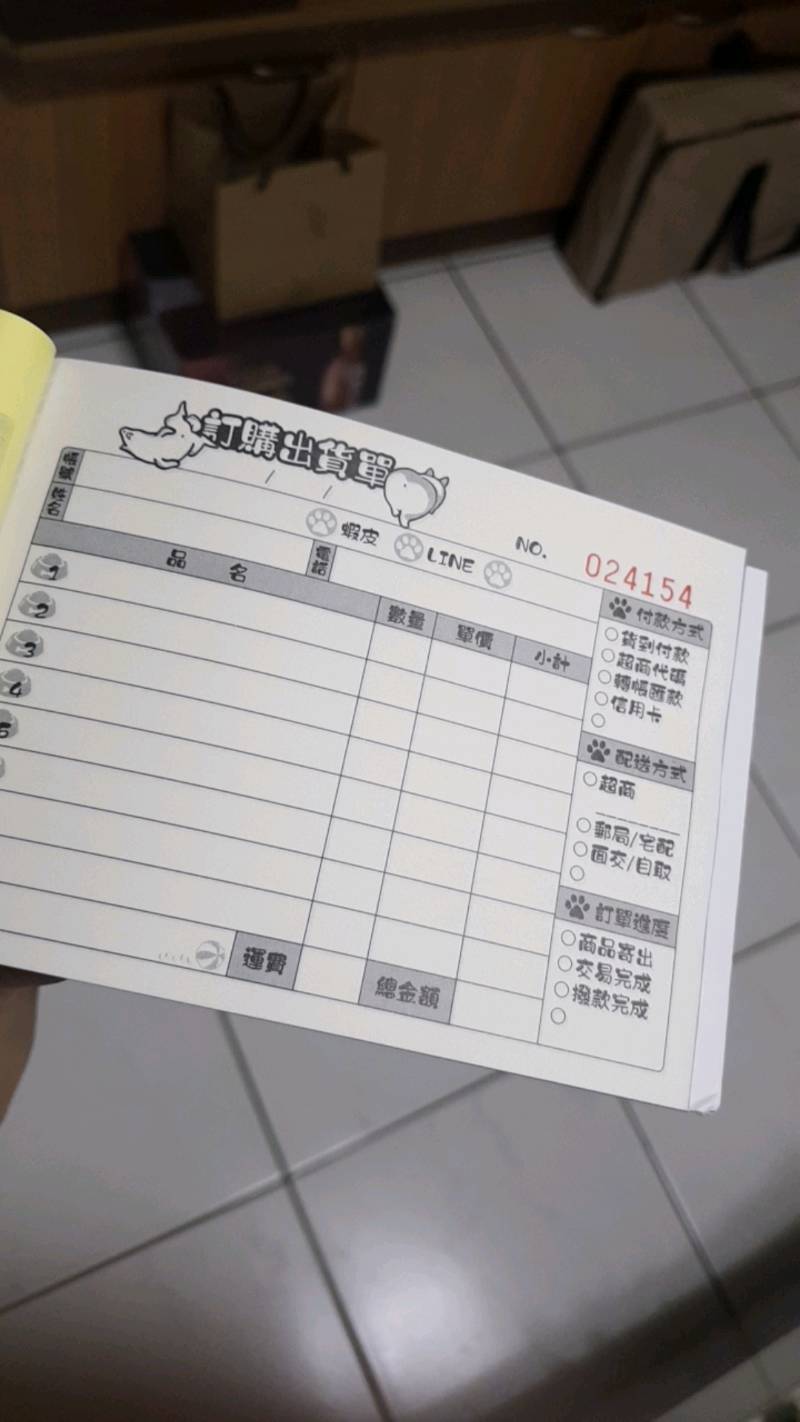 訂購出貨單
/ /
蝦皮 LINE
NO. 024154
電話
品名 數量 單價 小計
1
2
3
4
5
運費
總金額
付款方式
貨到付款
超商代碼
轉帳匯款
信用卡
配送方式
超商
郵局/宅配
面交/自取
訂單進度
商品寄出
交易完成
撥款完成